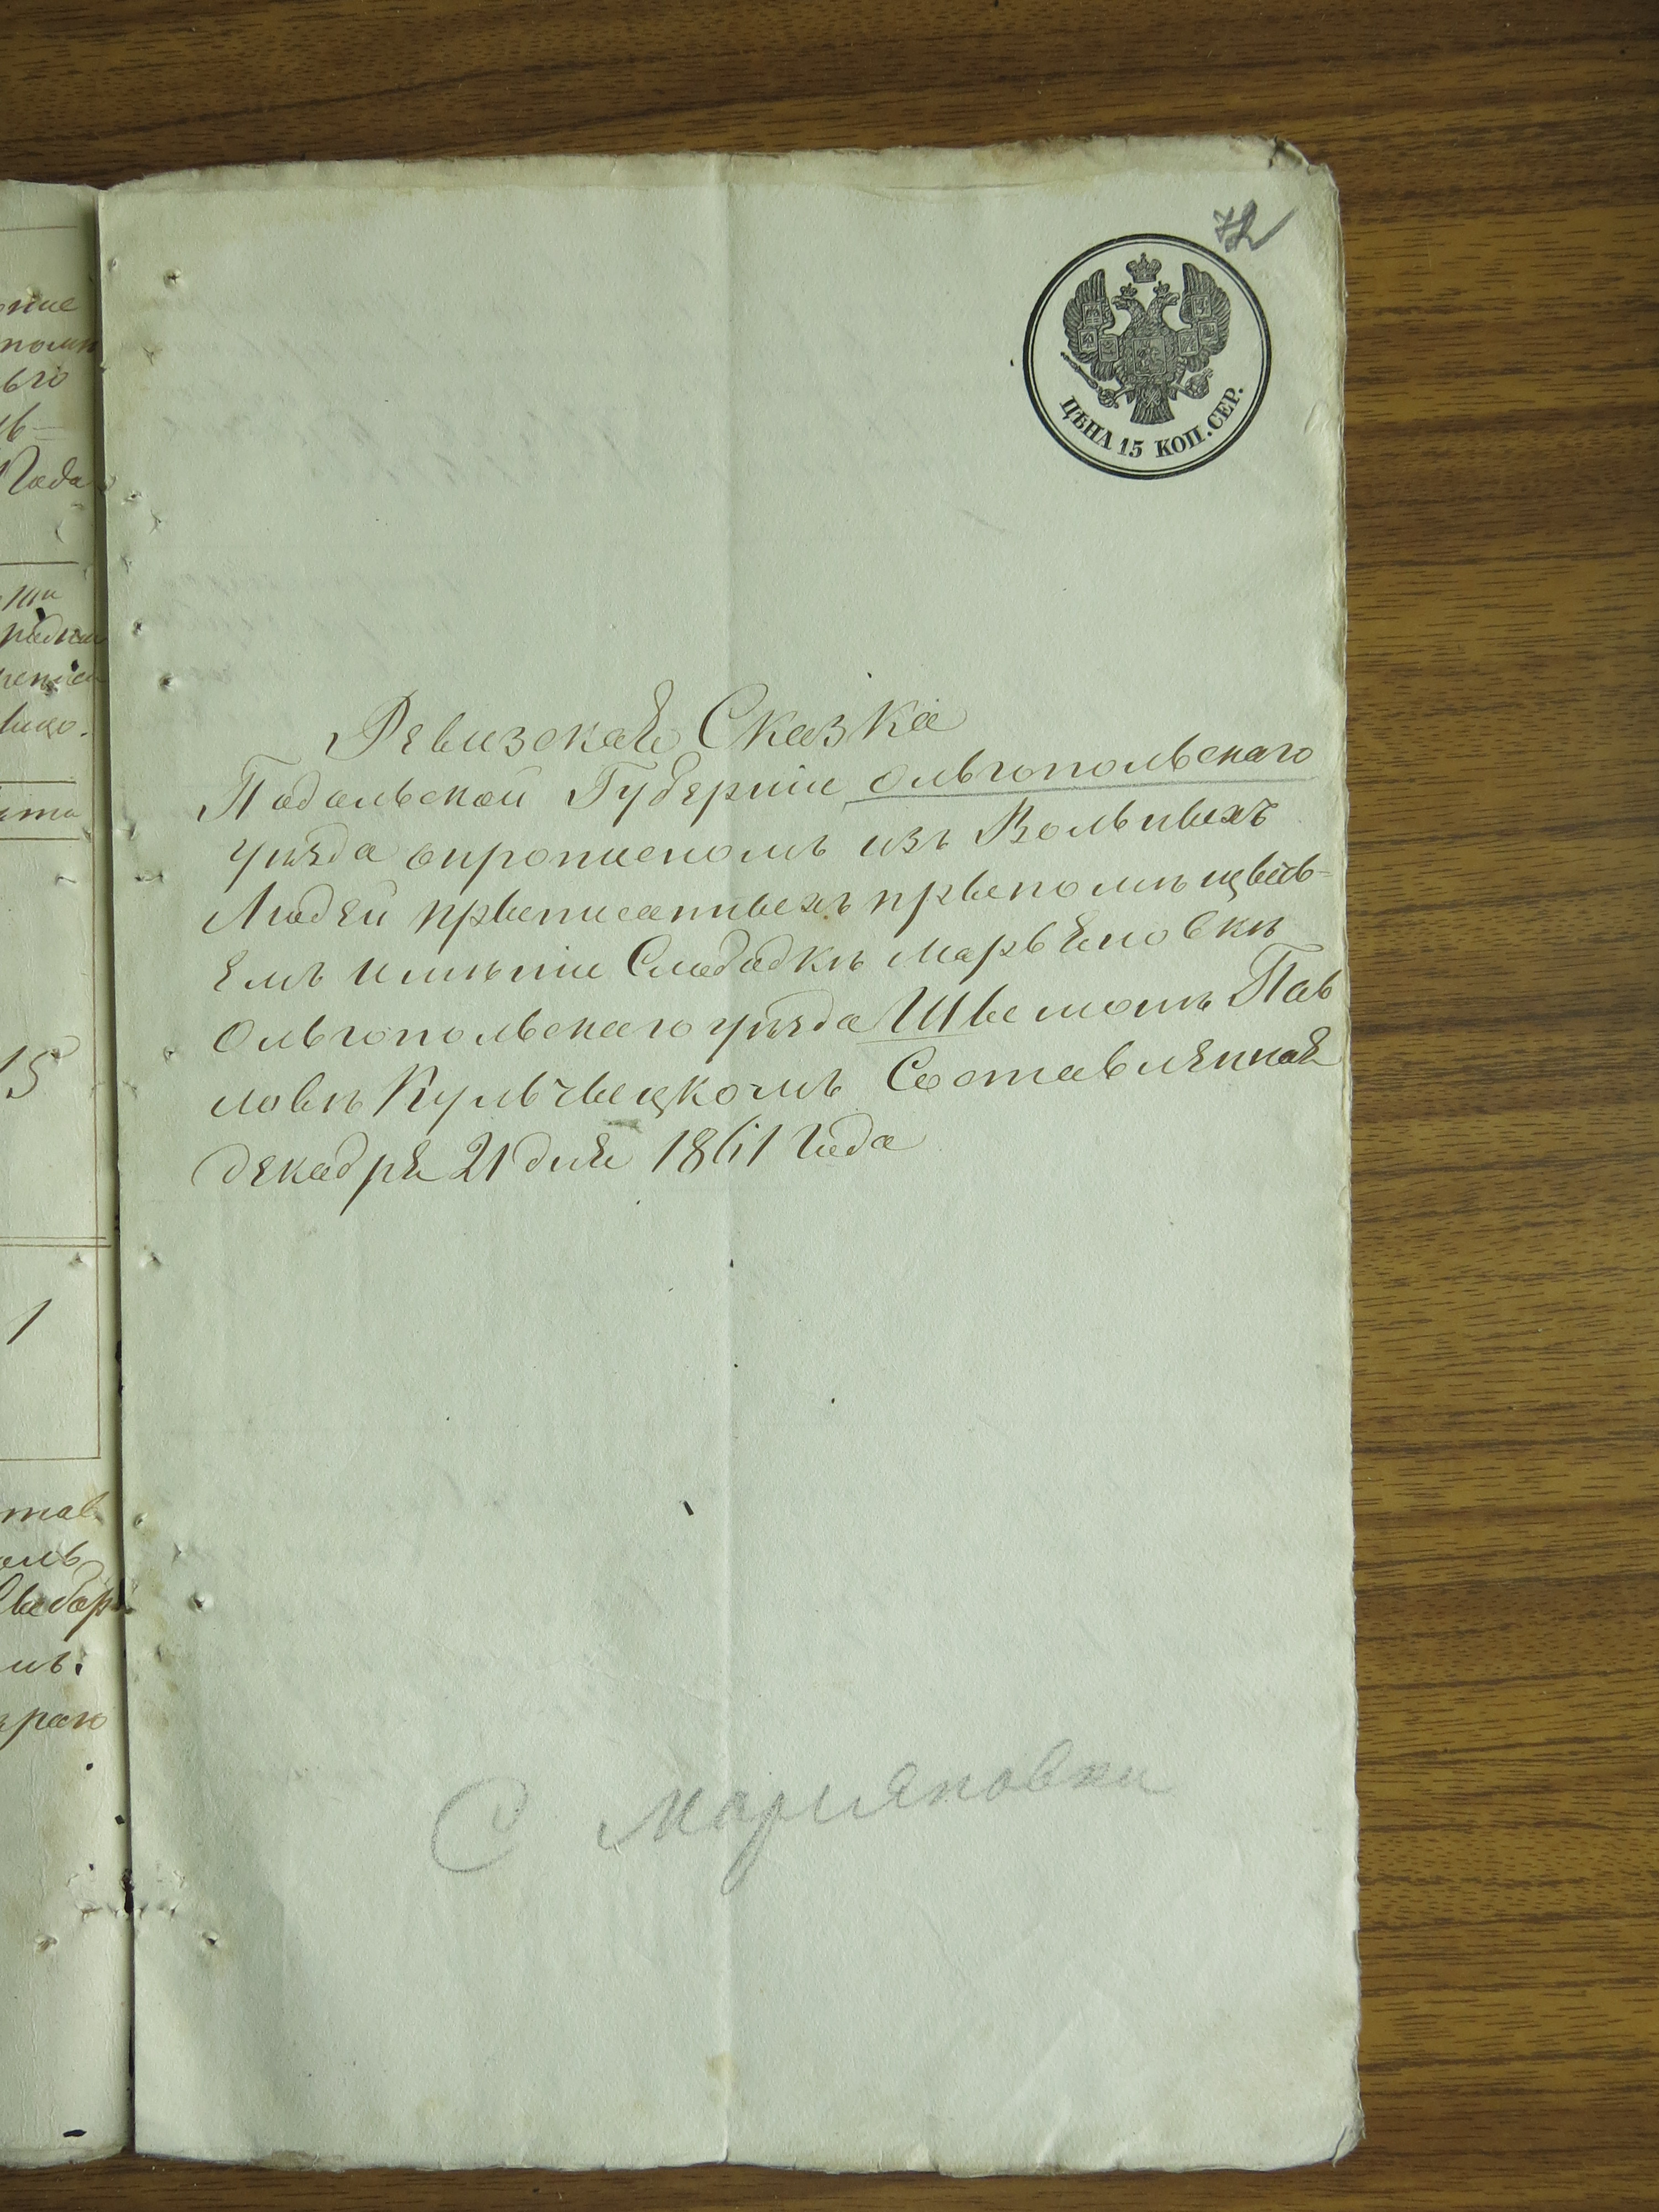 72
ЦѢНА 15 КОП. СЕР.
Ревизская Сказка
Подольской Губерніи Ольгопольскаго
уѣзда опрописномъ изъ Вольныхъ
Людей приписанныхъ припомѣщичь-
емъ имѣніи Слободкѣ Марьяновкѣ
Ольгопольскаго уѣзда Шы Пав
ловѣ Кульчицкомъ Составленная
декабря 21 дня 1861 Года
С Марияновки
15
1